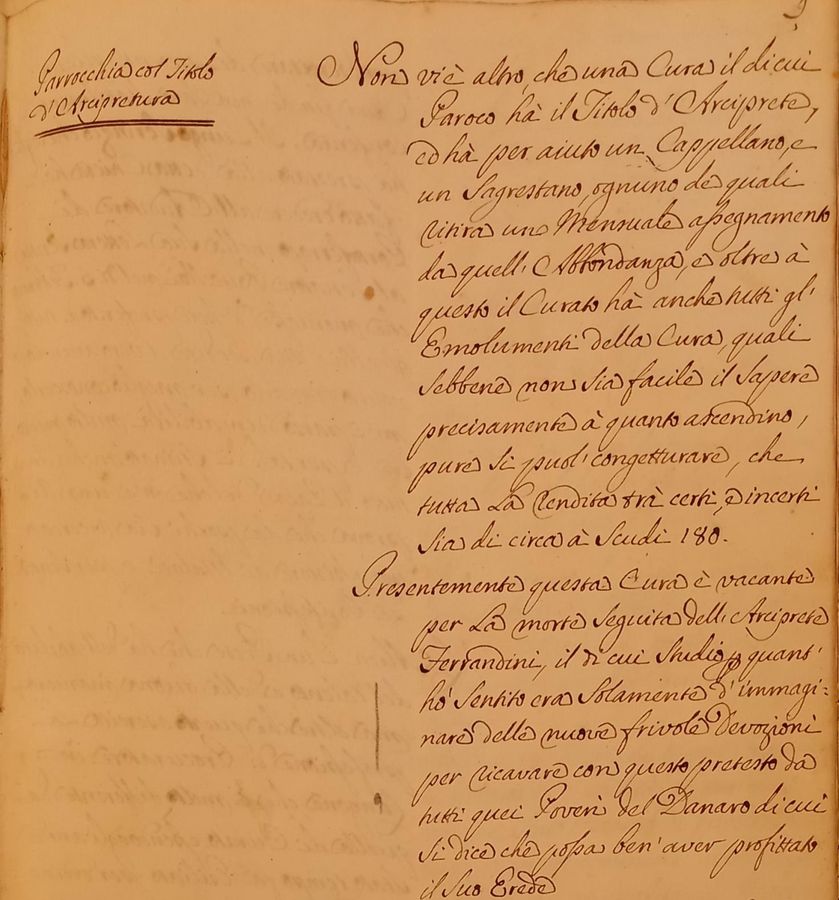 9
Parrocchia col Titolo
d'Arcipretura
Non vi è altro, che una Cura il di cui
Paroco hà il Titolo d'Arciprete,
ed hà per aiuto un Cappellano, e
un Sagrestano, ognuno de quali
ritira un Mensuale assegnamento
da quell'Abbondanza, e oltre à
questo il Curato hà anche tutti gl'
Emolumenti della Cura, quali
sebbene non sia facile il sapere
precisamente à quanto ascendino,
pure si puol' congetturare, che
tutta La rendita trà certi, e incerti
sia di circa à Scudi 180.
Presentemente questa Cura è vacante
per La morte seguita dell'Arciprete
Ferrandini, il di cui studio p quant'
hò sentito era solamente d'immagi-
nare delle nuove frivole Devozioni
per ricavare con questo pretesto da
tutti quei Poveri del Danaro di cui
si dice che possa ben'aver profittato
il suo Erede